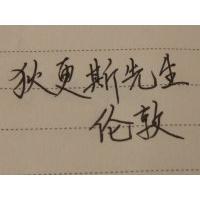 狄更斯先生
伦敦